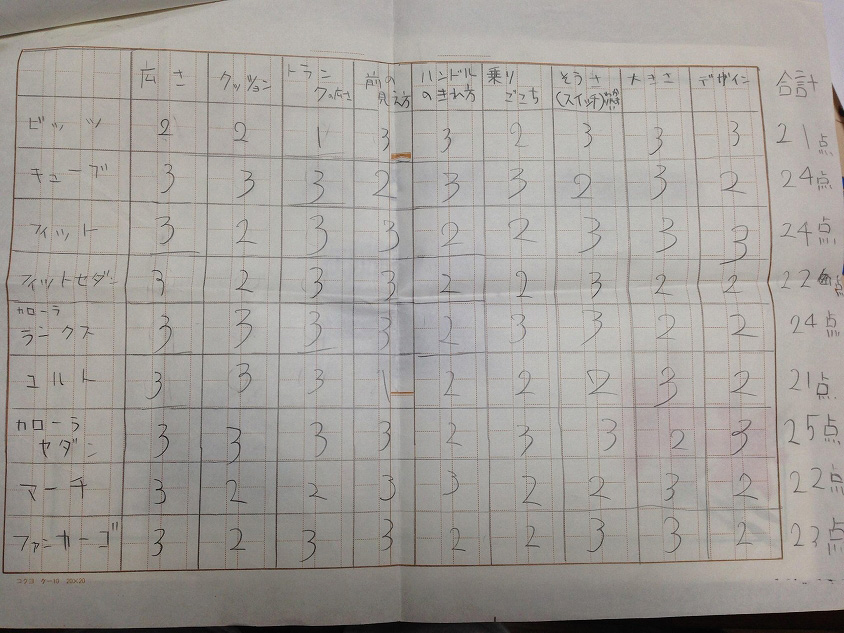 広さ クッション トランクの広さ 前の見え方 ハンドルのきれ方 乗りごこち そうさ(スイッチ) 大きさ デザイン 合計
ビッツ 2 2 1 3 3 2 3 3 3 21点
キューブ 3 3 3 2 3 3 2 3 2 24点
フィット 3 2 3 3 2 2 3 3 3 24点
フィットセダン 3 2 3 3 2 2 3 2 2 22点
カローラランクス 3 3 3 3 2 3 3 2 2 24点
コルト 3 3 3 1 2 2 2 3 2 21点
カローラセダン 3 3 3 3 2 3 3 2 3 25点
マーチ 3 2 2 3 3 2 2 3 2 22点
ファンカーゴ 3 2 3 3 2 2 3 3 2 23点
コクヨ ケー10 20×20